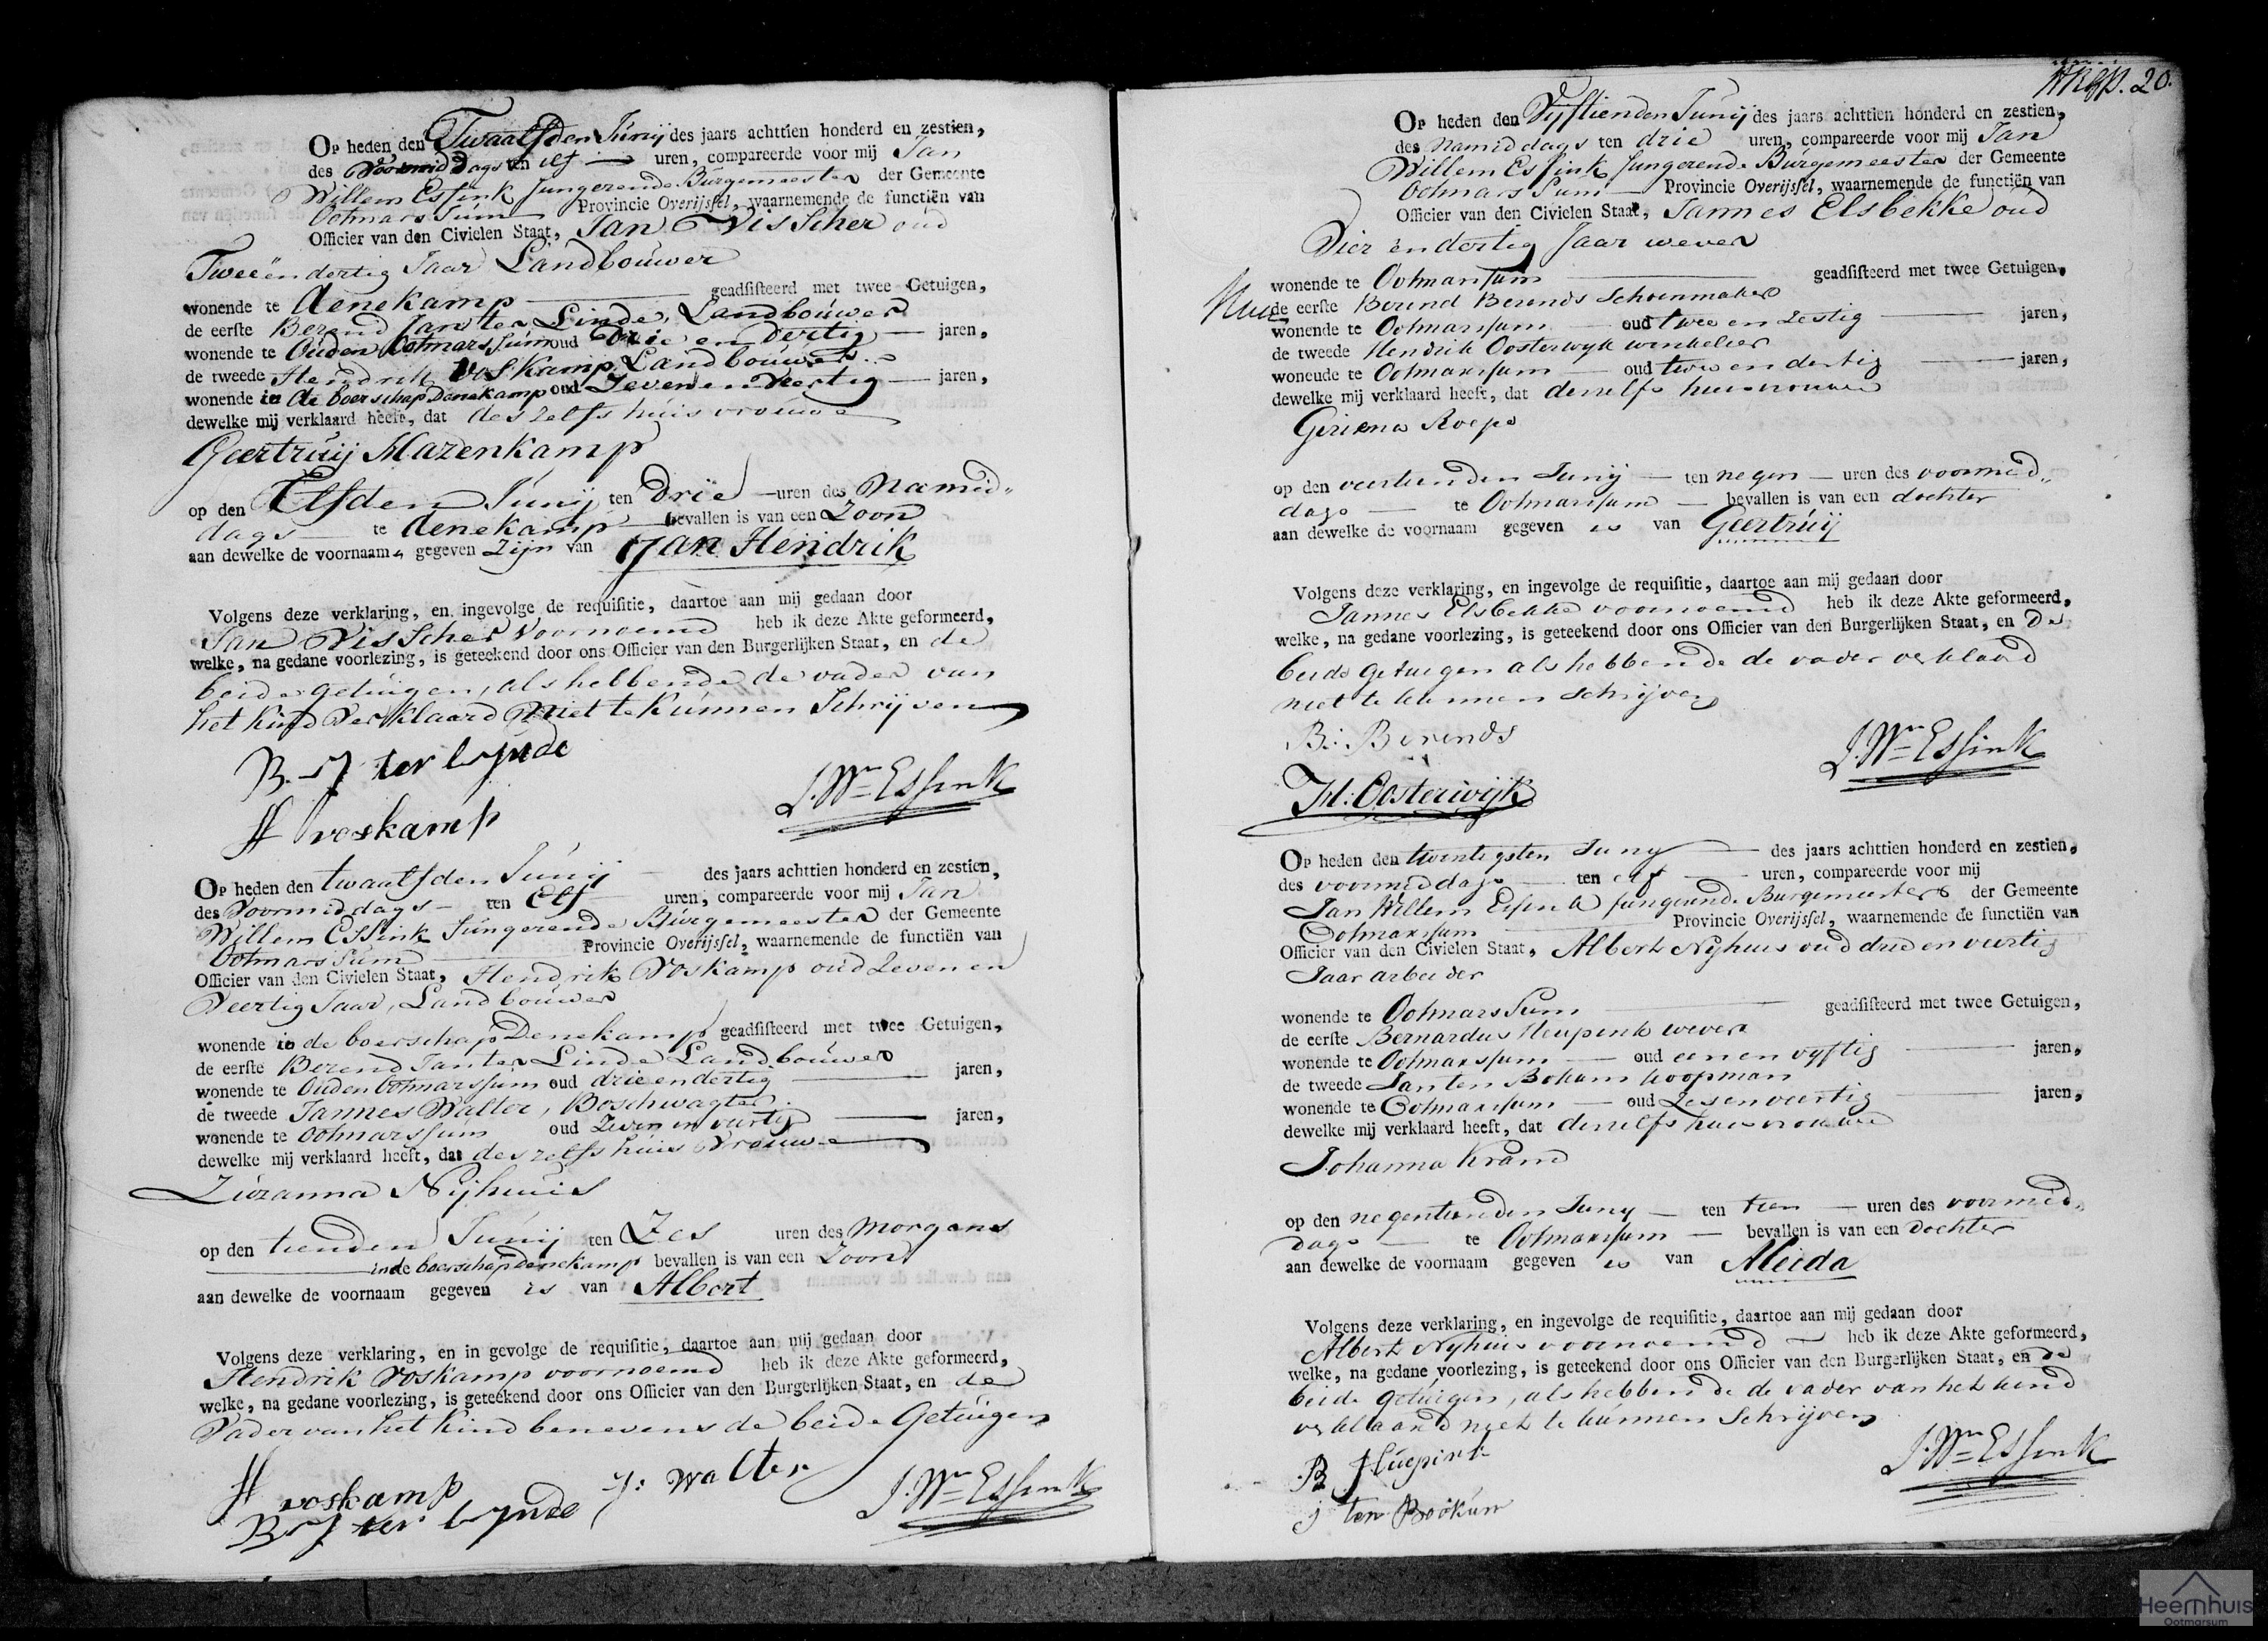 Op heden den Twaalfden Junij des jaars achttien honderd en zestien,
des Voormiddags ten elf uren, compareerde voor mij Jan
Willem Essink fungerende Burgemeester der Gemeente
Ootmarssum Provincie Overijssel, waarnemende de functiën van
Officier van den Civielen Staat, Jan Visscher oud
Twee en dertig Jaar Landbouwer
wonende te denekamp geadsisteerd met twee Getuigen,
de eerste Berend Jan ter Linde, Landbouwer
wonende te Ouden Ootmarssum oud drie en dertig jaren,
de tweede Hendrik Voskamp Landbouwer
wonende in de boerschap Denekamp oud Zeven en Veertig jaren,
dewelke mij verklaard heeft, dat deszelfs huisvrouwe
Geertruij Mazenkamp
op den Elfden Junij ten drie uren des Namid„
dags te denekamp bevallen is van een Zoon
aan dewelke de voornaam gegeven zijn van Jan Hendrik
Volgens deze verklaring, en ingevolge de requisitie, daartoe aan mij gedaan door
Jan Visscher voornoemd heb ik deze Akte geformeerd,
welke, na gedane voorlezing, is geteekend door ons Officier van den Burgerlijken Staat, en de
beide getuigen, als hebbende de vader van
het kind verklaard niet te kunnen Schrijven
B. J ter Lynde
J. Wm Essink
H voskamp
Op heden den twaalfden Junij des jaars achttien honderd en zestien,
des Voormiddags ten Elf uren, compareerde voor mij Jan
Willem Essink fungerende Burgemeester der Gemeente
Ootmarssum Provincie Overijssel, waarnemende de functiën van
Officier van den Civielen Staat, Hendrik Voskamp oud Zeven en
Veertig Jaar, Landbouwer
wonende in de boerschap Denekamp geadsisteerd met twee Getuigen,
de eerste Berend Jan ter Linde Landbouwer
wonende te Ouden Ootmarssum oud drie en dertig jaren,
de tweede Jannes Walter, Boschwagter
wonende te Ootmarssum oud Zeven en veertig jaren,
dewelke mij verklaard heeft, dat deszelfs huis Vrouwe
Zuzanna Nijhuis
op den tienden Junij ten Zes uren des morgens
in de boerschap Denekamp bevallen is van een Zoon
aan dewelke de voornaam gegeven is van Albert
Volgens deze verklaring, en in gevolge de requisitie, daartoe aan mij gedaan door
Hendrik Voskamp voornoemd heb ik deze Akte geformeerd,
welke, na gedane voorlezing, is geteekend door ons Officier van den Burgerlijken Staat, en de
Vader van het kind benevens de beide Getuigen
H voskamp J: Walter
B J ter Lynde J. Wm Essink
20.
Op heden den Vyftienden Junij des jaars achttien honderd en zestien,
des Namiddags ten drie uren, compareerde voor mij Jan
Willem Essink fungerende Burgemeester der Gemeente
Ootmarssum Provincie Overijssel, waarnemende de functiën van
Officier van den Civielen Staat, Jannes Elsbekke oud
Vier en dertig Jaar wever
wonende te Ootmarssum geadsisteerd met twee Getuigen,
de eerste Berend Berends Schoenmaker
wonende te Ootmarssum oud twee en Zestig jaren,
de tweede Hendrik Oosterwyk winkelier
wonende te Ootmarssum oud twee en dertig jaren,
dewelke mij verklaard heeft, dat deszelfs huisvrouwe
Geriena Roepe
op den veertienden Junij ten negen uren des voormid„
dags te Ootmarssum bevallen is van een dochter
aan dewelke de voornaam gegeven is van Geertruij
Volgens deze verklaring, en ingevolge de requisitie, daartoe aan mij gedaan door
Jannes Elsbekke voornoemd heb ik deze Akte geformeerd,
welke, na gedane voorlezing, is geteekend door ons Officier van den Burgerlijken Staat, en de
beide Getuigen als hebbende de vader verklaard
niet te kunnen Schrijven
B: Berends
J. Wm Essink
H: Oosterwijk
Op heden den twintigsten Juny des jaars achttien honderd en zestien,
des voormiddags ten elf uren, compareerde voor mij
Jan Willem Essink fungerende Burgemeester der Gemeente
Ootmarssum Provincie Overijssel, waarnemende de functiën van
Officier van den Civielen Staat, Albert Nyhuis oud drie en veertig
Jaar arbeider
wonende te Ootmarssum geadsisteerd met twee Getuigen,
de eerste Bernardus Heupink wever
wonende te Ootmarssum oud een en vyftig jaren,
de tweede Jan ten Bokum koopman
wonende te Ootmarssum oud Zes en veertig jaren,
dewelke mij verklaard heeft, dat deszelfs huisvrouwe
Johanna Krand
op den negentienden Juny ten tien uren des voormid„
dags te Ootmarssum bevallen is van een dochter
aan dewelke de voornaam gegeven is van Aleida
Volgens deze verklaring, en ingevolge de requisitie, daartoe aan mij gedaan door
Albert Nyhuis voornoemd heb ik deze Akte geformeerd,
welke, na gedane voorlezing, is geteekend door ons Officier van den Burgerlijken Staat, en de
beide Getuigen, als hebbende de vader van het kind
verklaard niet te kunnen Schrijven
B Huepink
J. Wm Essink
j ten Bookum
Heemhuis
Ootmarsum